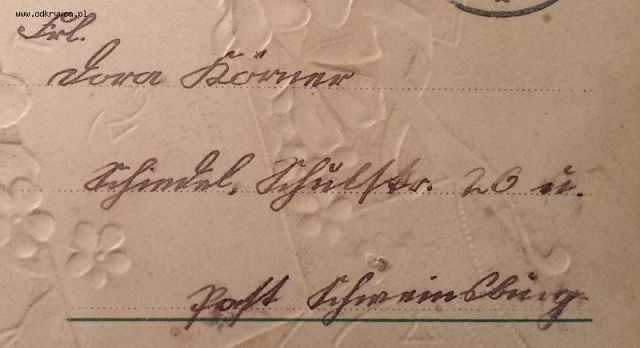 www.odkrywca.pl
Frl.
Dora Körner
Schiedel, Schulstr. 26 u.
Post Schweinsburg.